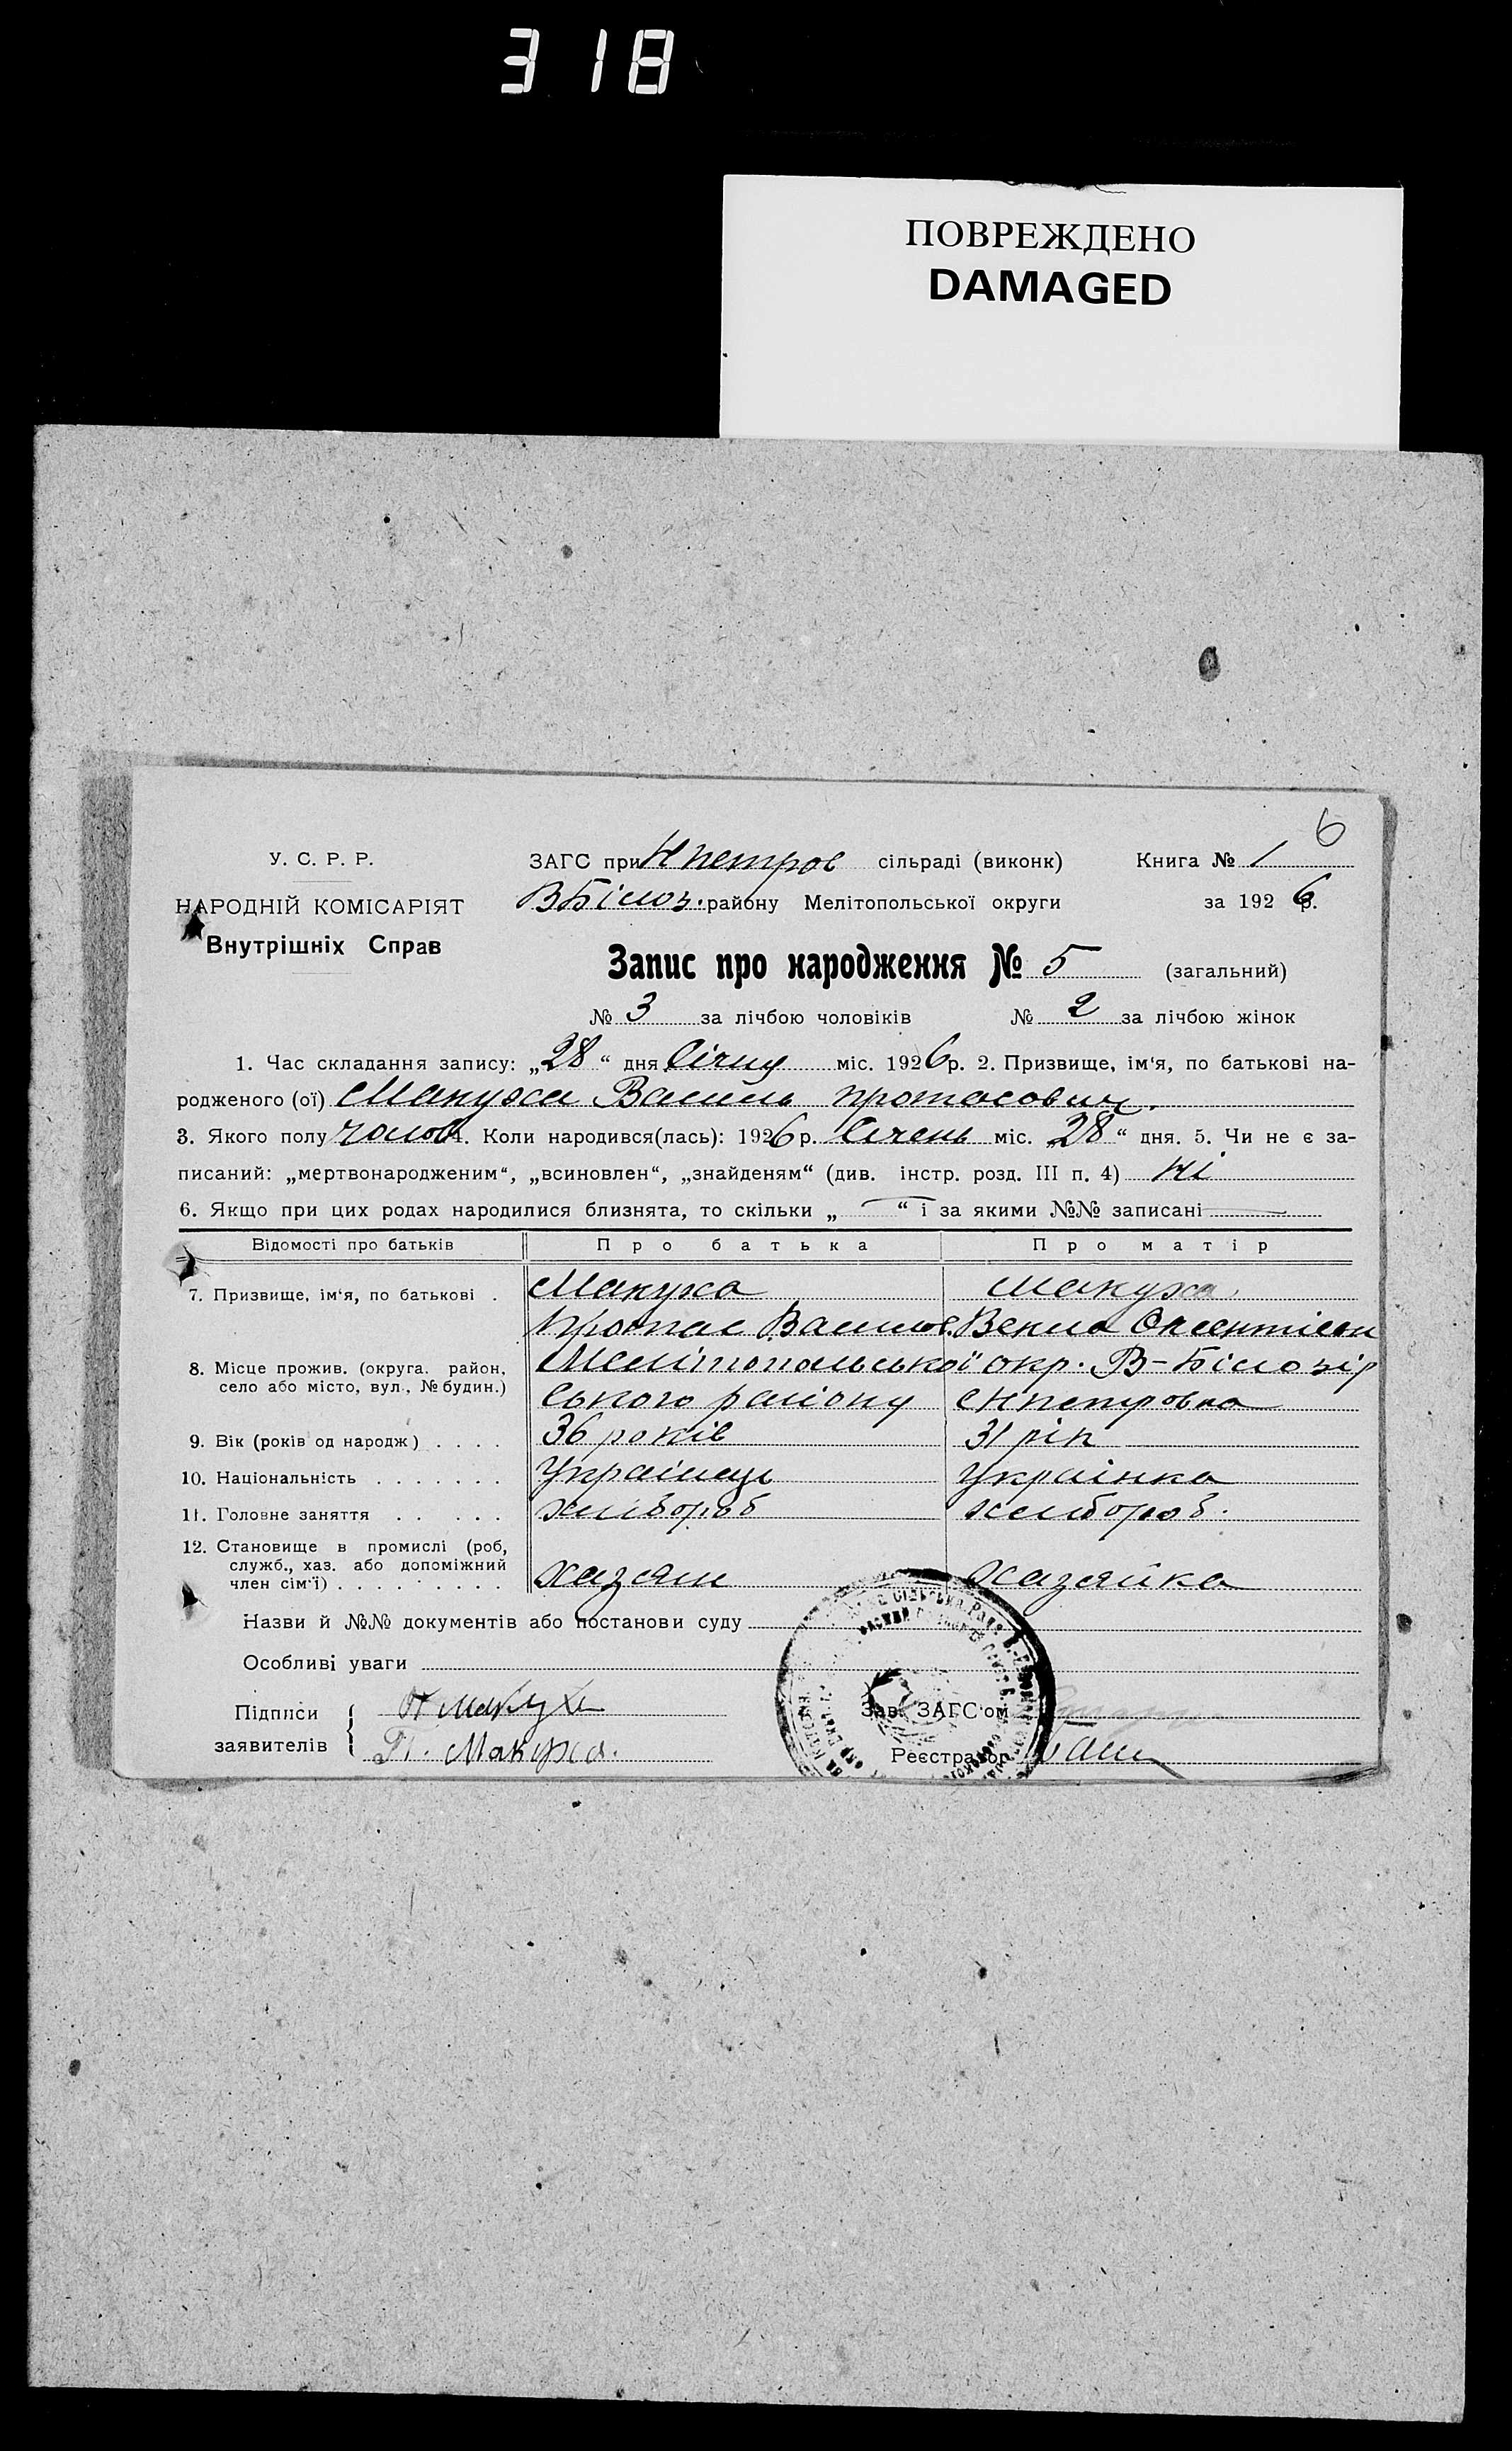 318
ПОВРЕЖДЕНО
DAMAGED
6
У. С. Р. Р.
НАРОДНІЙ КОМІСАРІЯТ
Внутрішніх Справ
ЗАГС при Нпетров сільраді (виконк) Книга № 1
ВБілоз. району Мелітопольської округи за 1926 р.
Запис про народження № 5 (загальний)
№ 3 за лічбою чоловіків № 2 за лічбою жінок
1. Час складання запису: „28“ дня Січня міс. 1926 р. 2. Призвище, ім'я, по батькові на-
родженого (ої) Макуха Василь Протасович.
3. Якого полу чолов 4. Коли народився(лась): 1926 р. Січень міс. 28“ дня. 5. Чи не є за-
писаний: „мертвонародженим“, „всиновлен“, „знайденям“ (див. інстр. розд. III п. 4) Ні
6. Якщо при цих родах народилися близнята, то скільки „—“ і за якими №№ записані —
Відомості про батьків Про батька Про матір
7. Призвище, ім'я, по батькові . Макуха Макуха
Протас Васильов. Векла Оксентієвн
8. Місце прожив. (округа, район, село або місто, вул., № будин.) Мелітопольської окр. В-Білозір
ського району с Нпетровка
9. Вік (років од народж) . . . . 36 років 31 рік
10. Національність . . . . . . . Українець Українка
11. Головне заняття . . . . . . хлібороб хлібороб.
12. Становище в промислі (роб,
служб., хаз. або допоміжний
член сім'ї) . . . . . . . . . хазяїн хазяйка
Назви й №№ документів або постанови суду
Особливі уваги
Підписи Макуха Зав. ЗАГС'ом
заявителів П. Макуха. Реєстратор